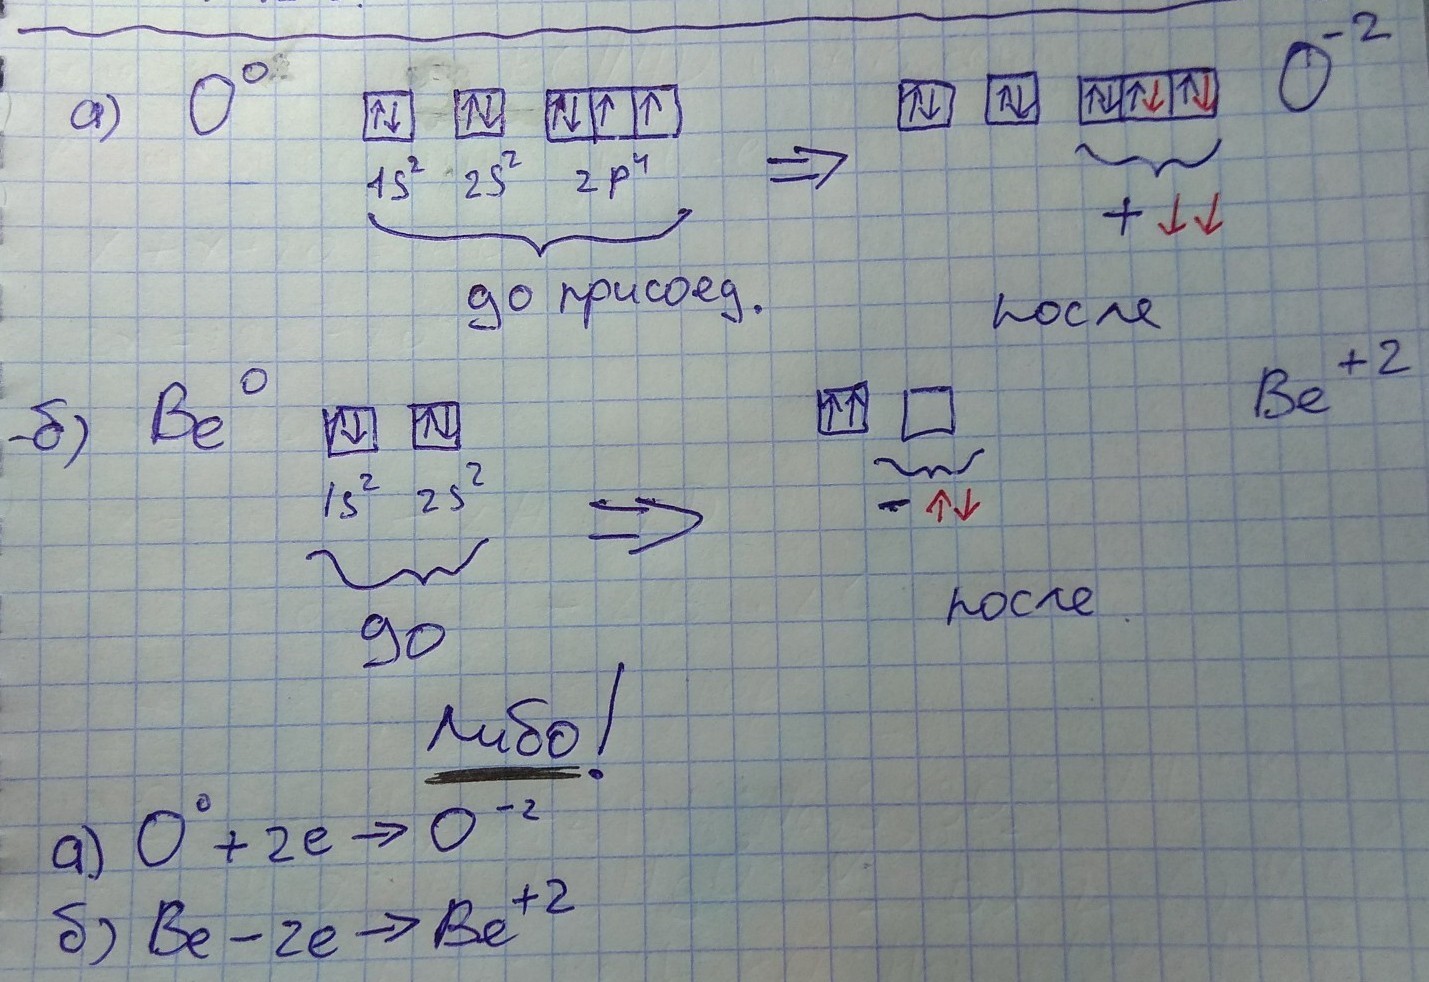 а) O⁰ ↑↓ ↑↓ ↑↓ ↑ ↑ ⇒ ↑↓ ↑↓ ↑↓ ↑↓ ↑↓ O⁻²
1s² 2s² 2p⁴
+ ↓↓
до присоед. после
б) Be⁰ ↑↓ ↑↓ ⇒ ↑↑ Be⁺²
1s² 2s² - ↑↓
до после
Либо!
а) O⁰ + 2e → O⁻²
б) Be - 2e → Be⁺²